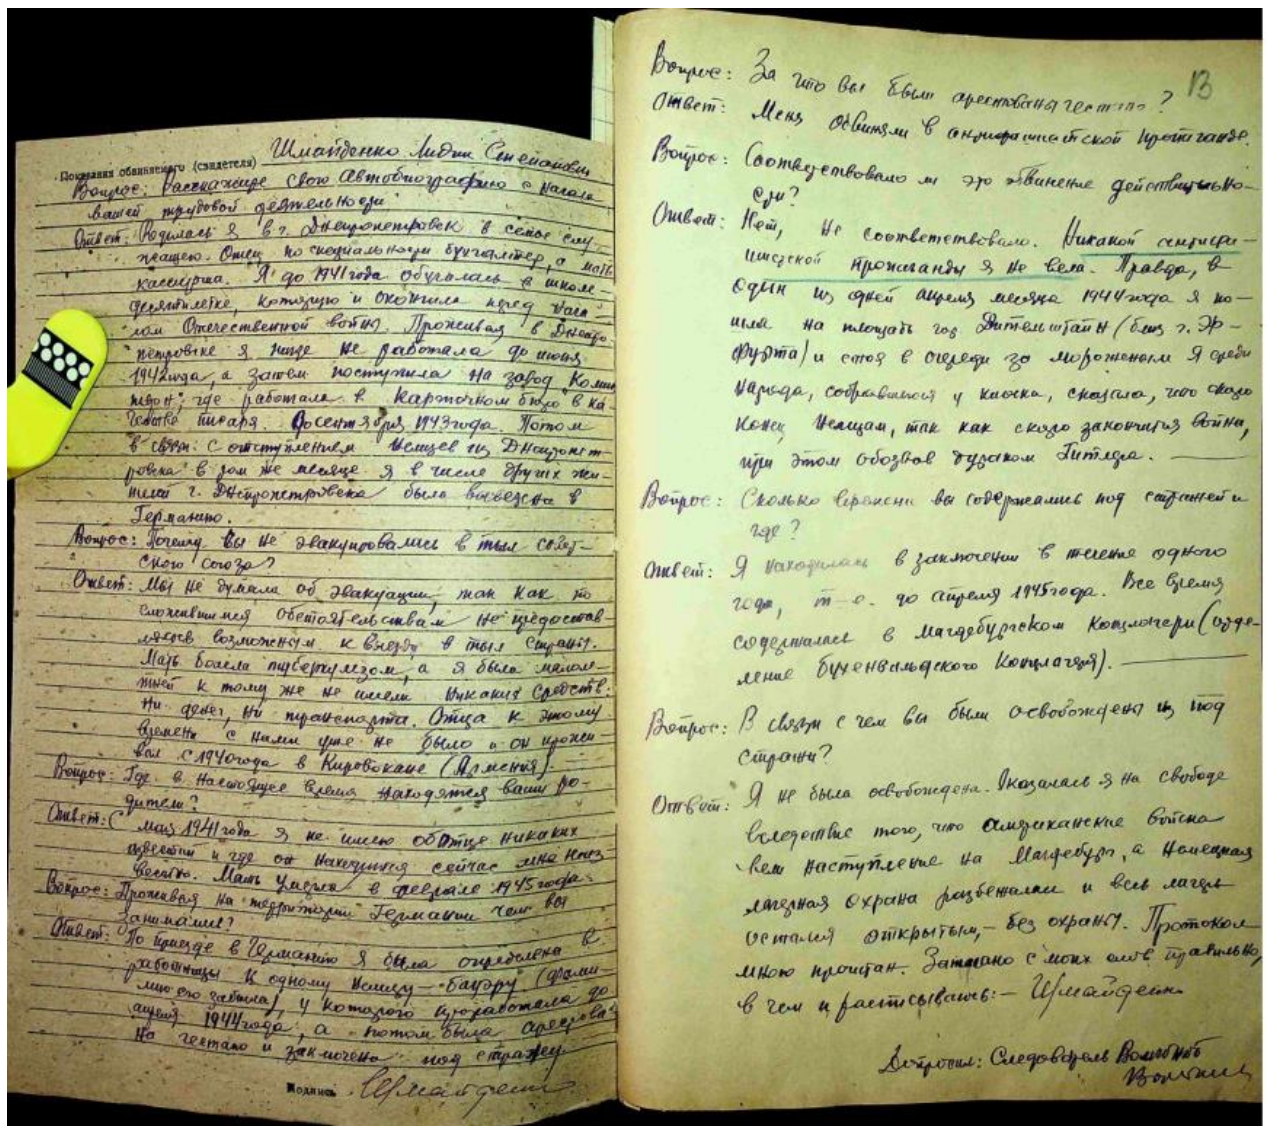 Показания обвиняемого (свидетеля) Шмайденко Лидии Семеновны
Вопрос: Расскажите свою автобиографию с начала
вашей трудовой деятельности
Ответ: Родилась я в г. Днепропетровск в семье слу-
жащего. Отец по специальности бухгалтер, а мать
кассирша. Я до 1941 года обучалась в школе-
десятилетке, которую и окончила перед нача-
лом Отечественной войны. Проживая в Днепро-
петровске я нигде не работала до июня
1942 года, а затем поступила на завод "Комин-
терн", где работала в карточном бюро в ка-
честве писаря. До сентября 1943 года. Потом
в связи с отступлением немцев из Днепропет-
ровска в том же месяце я в числе других жи-
телей г. Днепропетровска была вывезена в
Германию.
Вопрос: Почему вы не эвакуировались в тыл совет-
ского союза?
Ответ: Мы не думали об эвакуации, так как по
сложившимся обстоятельствам не предостав-
лялось возможным к выезду в тыл страны.
Мать болела туберкулезом, а я была малоле-
тней к тому же не имели никаких средств:
ни денег, ни транспорта. Отца к этому
времени с нами уже не было и он прожи-
вал с 1940 года в Кировокане (Армения).
Вопрос: Где в настоящее время находятся ваши ро-
дители?
Ответ: С мая 1941 года я не имею об отце никаких
известий и где он находится сейчас мне неиз-
вестно. Мать умерла в феврале 1945 года.
Вопрос: Проживая на территории Германии чем вы
занимались?
Ответ: По приезде в Германию я была определена в
работницы к одному немцу - бауэру (фами-
лию его забыла), у которого проработала до
апреля 1944 года, а потом была арестова-
на гестапо и заключена под стражу.
Подпись Шмайденко
13
Вопрос: За что вы были арестованы гестапо?
Ответ: Меня обвиняли в антифашистской пропаганде.
Вопрос: Соответствовало ли это обвинение действительно-
сти?
Ответ: Нет, не соответствовало. Никакой антифа-
шистской пропаганды я не вела. Правда, в
один из дней апреля месяца 1944 года я по-
шла на площадь гор. Дительштайн (близ г. Эр-
фурта) и стоя в очереди за мороженым я среди
народа, собравшегося у киоска, сказала, что скоро
конец немцам, так как скоро закончится война,
при этом обозвав дураком Гитлера.
Вопрос: Сколько времени вы содержались под стражей и
где?
Ответ: Я находилась в заключении в течение одного
года, т-е. до апреля 1945 года. Все время
содержалась в Магдебургском концлагере (отде-
ление бухенвальдского концлагеря).
Вопрос: В связи с чем вы были освобождены из под
стражи?
Ответ: Я не была освобождена. Оказалась я на свободе
вследствие того, что американские войска
вели наступление на Магдебург, а немецкая
лагерная охрана разбежалась и весь лагерь
остался открытым, - без охраны. Протокол
мною прочитан. Записано с моих слов правильно,
в чем и расписываюсь: - Шмайденко
Допросил: Следователь